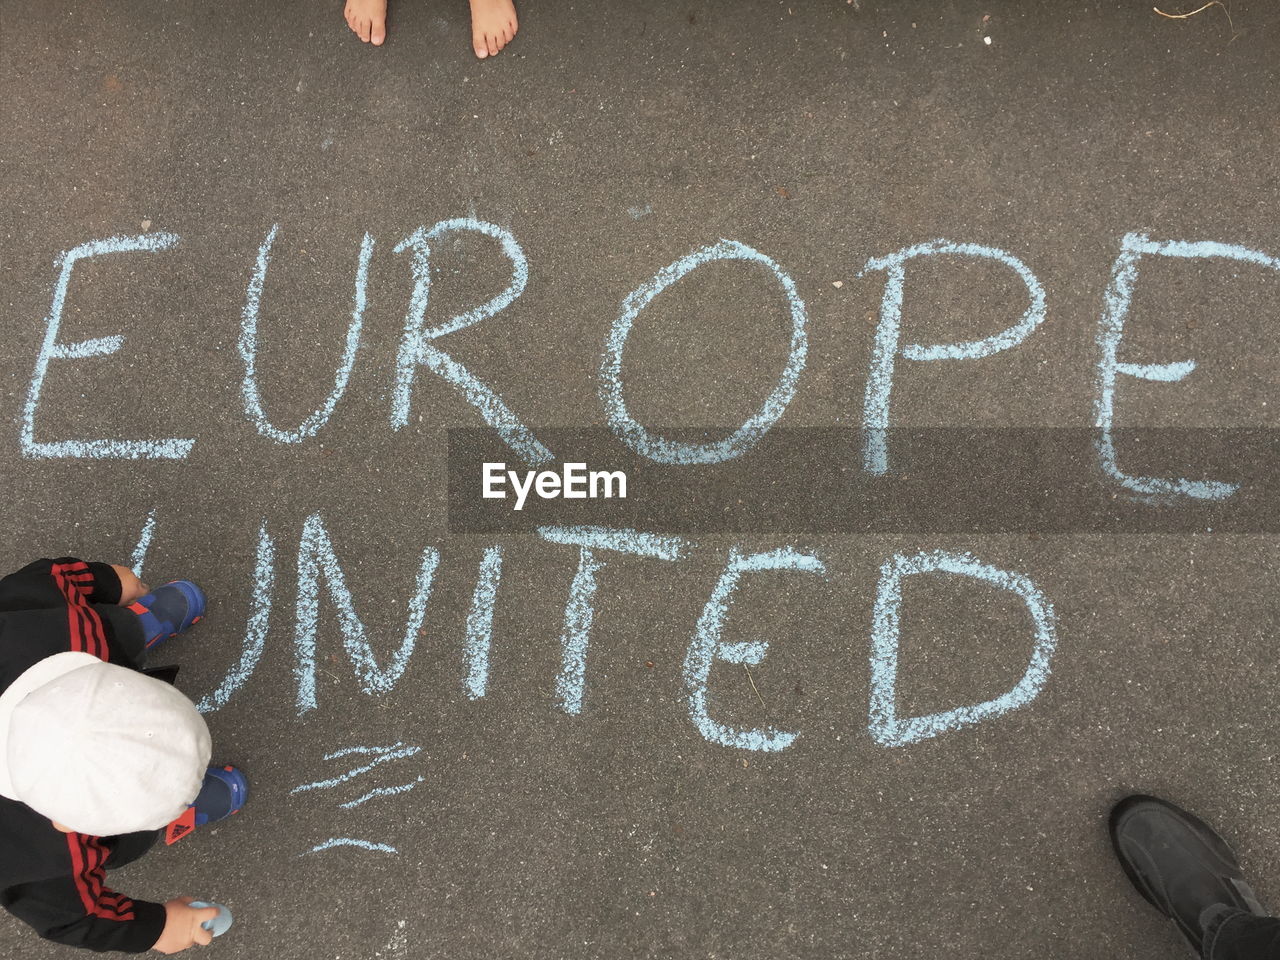 EUROPE
EyeEm
UNITED